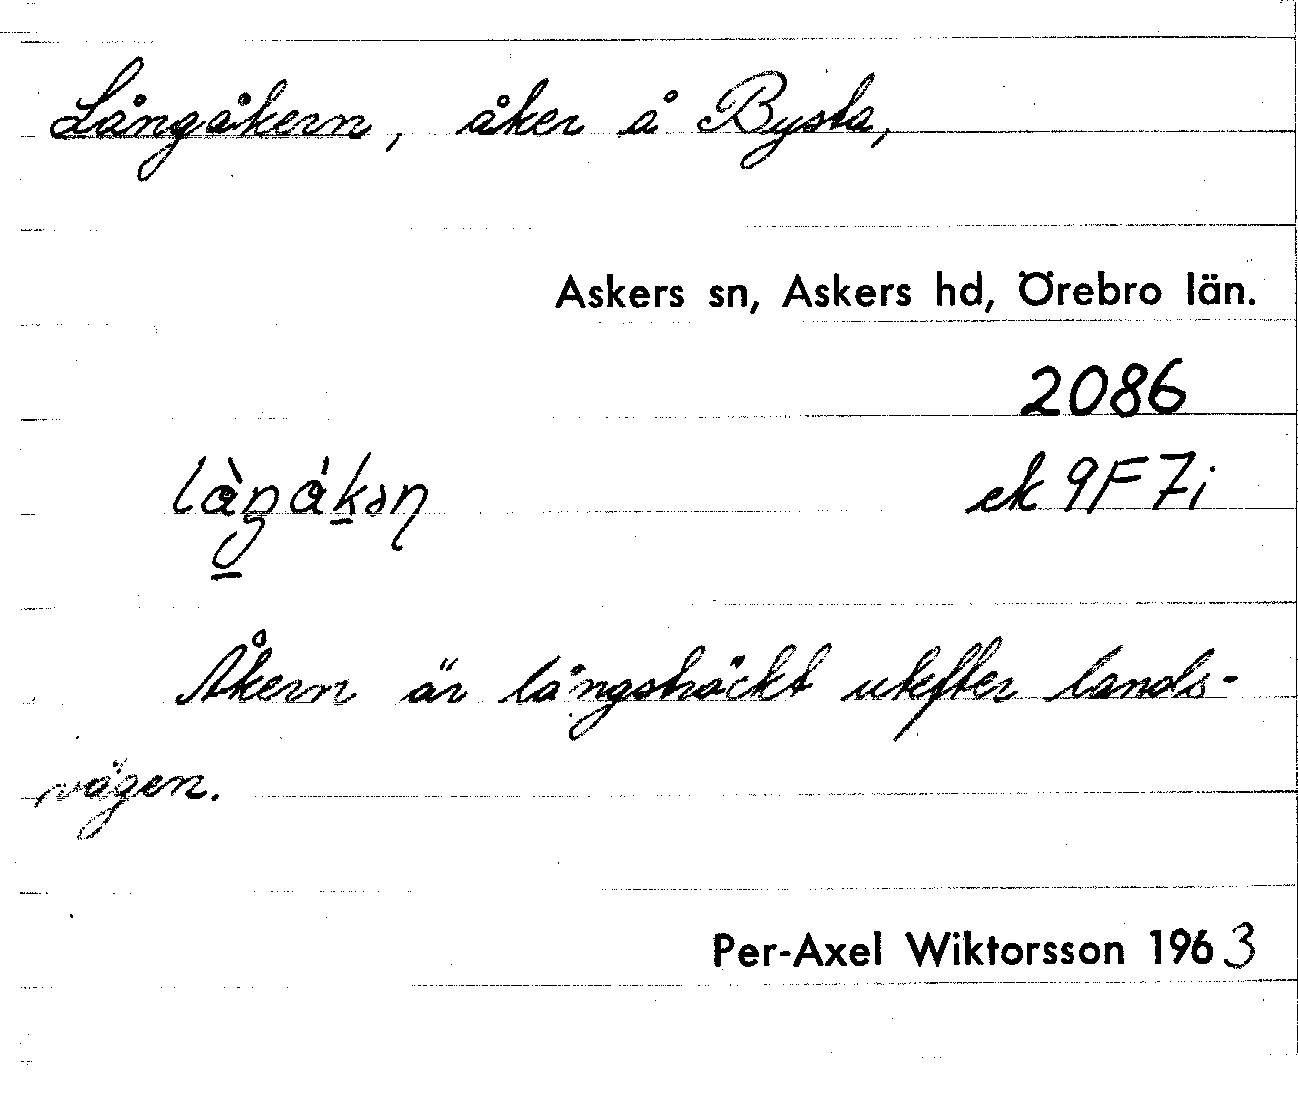 Långåkern, åker å Bysta,
Askers sn, Askers hd, Örebro län.
2086
làŋákən ek 9F7i
Åkern är långsträckt utefter lands-
vägen.
Per-Axel Wiktorsson 1963